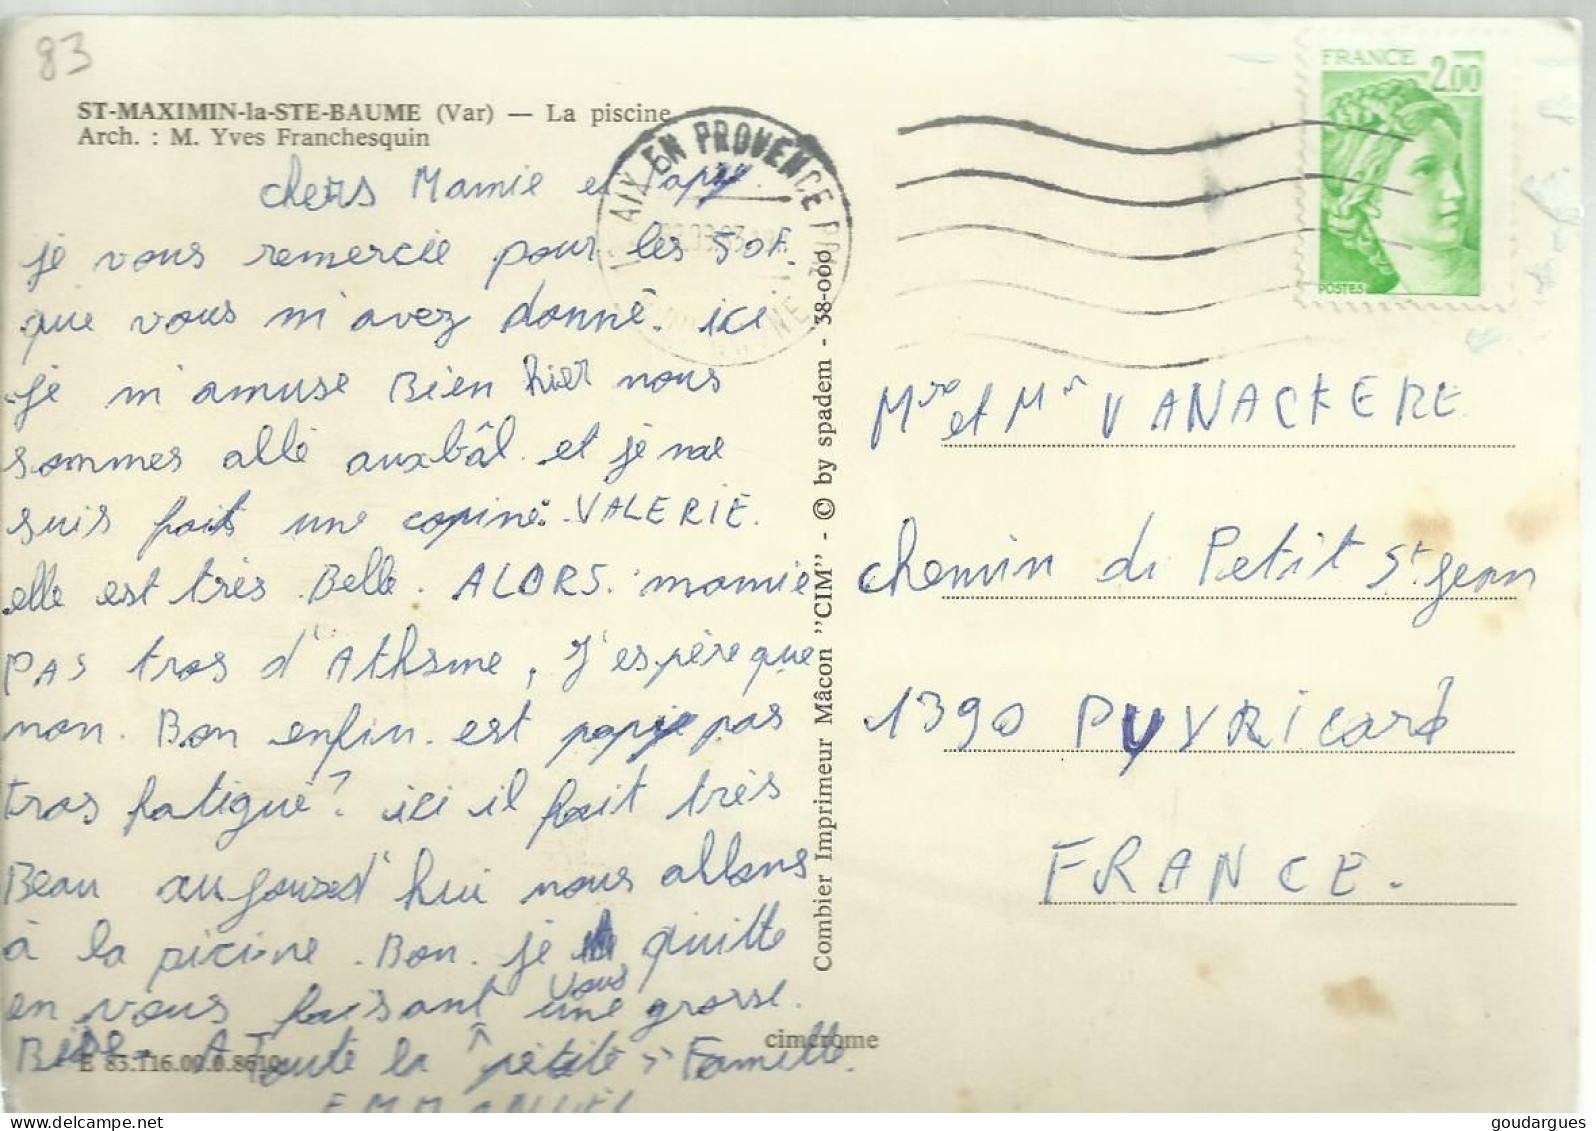 83
ST-MAXIMIN-la-STE-BAUME (Var) — La piscine
Arch. : M. Yves Franchesquin
chers Mamie et Papy.
je vous remercie pour les 50F.
que vous m'avez donné. ici
je m'amuse Bien hier nous
sommes allé aux bâl. et je me
suis fait une copine. VALERIE.
elle est très Belle. ALORS. mamie
PAS tros d'Athsme, J'espère que
non. Bon enfin. est papy pas
tros fatigué? ici il fait très
Beau aujourd'hui nous allons
à la picine. Bon. je vous quitte
en vous faisant une grosse.
Bise. A Toute la "petite" Famille.
EMMANUEL
E 83.116.00.0.8619
cimcrome
Combier Imprimeur Mâcon "CIM" - © by spadem - 38-000
AIX EN PROVENCE PPAL
FRANCE 2.00
POSTES
Mre et Mr VANACKERE
chemin du Petit St jean
1390 PUYRicard
FRANCE.
goudargues @ www.delcampe.net